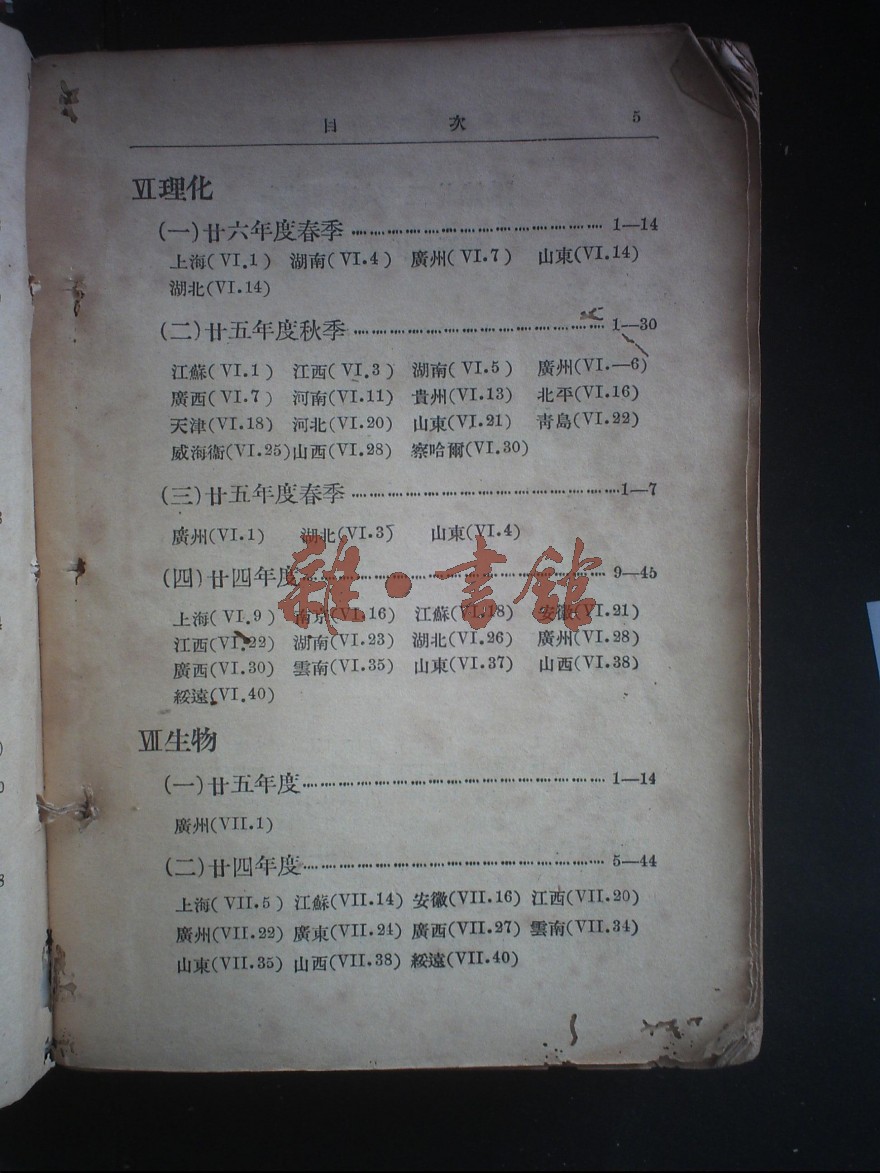 目 次 5
VI 理化
(一)廿六年度春季 ………………………………… 1—14
上海(VI.1) 湖南(VI.4) 廣州(VI.7) 山東(VI.14)
湖北(VI.14)
(二)廿五年度秋季 ………………………………… 1—30
江蘇(VI.1) 江西(VI.3) 湖南(VI.5) 廣州(VI.—6)
廣西(VI.7) 河南(VI.11) 貴州(VI.13) 北平(VI.16)
天津(VI.18) 河北(VI.20) 山東(VI.21) 青島(VI.22)
威海衞(VI.25) 山西(VI.28) 察哈爾(VI.30)
(三)廿五年度春季 ………………………………… 1—7
廣州(VI.1) 湖北(VI.3) 山東(VI.4)
(四)廿四年度 ………………………………… 9—45
上海(VI.9) 南京(VI.16) 江蘇(VI.18) 安徽(VI.21)
江西(VI.22) 湖南(VI.23) 湖北(VI.26) 廣州(VI.28)
廣西(VI.30) 雲南(VI.35) 山東(VI.37) 山西(VI.38)
綏遠(VI.40)
雜·書館
VII 生物
(一)廿五年度 ………………………………… 1—14
廣州(VII.1)
(二)廿四年度 ………………………………… 5—44
上海(VII.5) 江蘇(VII.14) 安徽(VII.16) 江西(VII.20)
廣州(VII.22) 廣東(VII.24) 廣西(VII.27) 雲南(VII.34)
山東(VII.35) 山西(VII.38) 綏遠(VII.40)